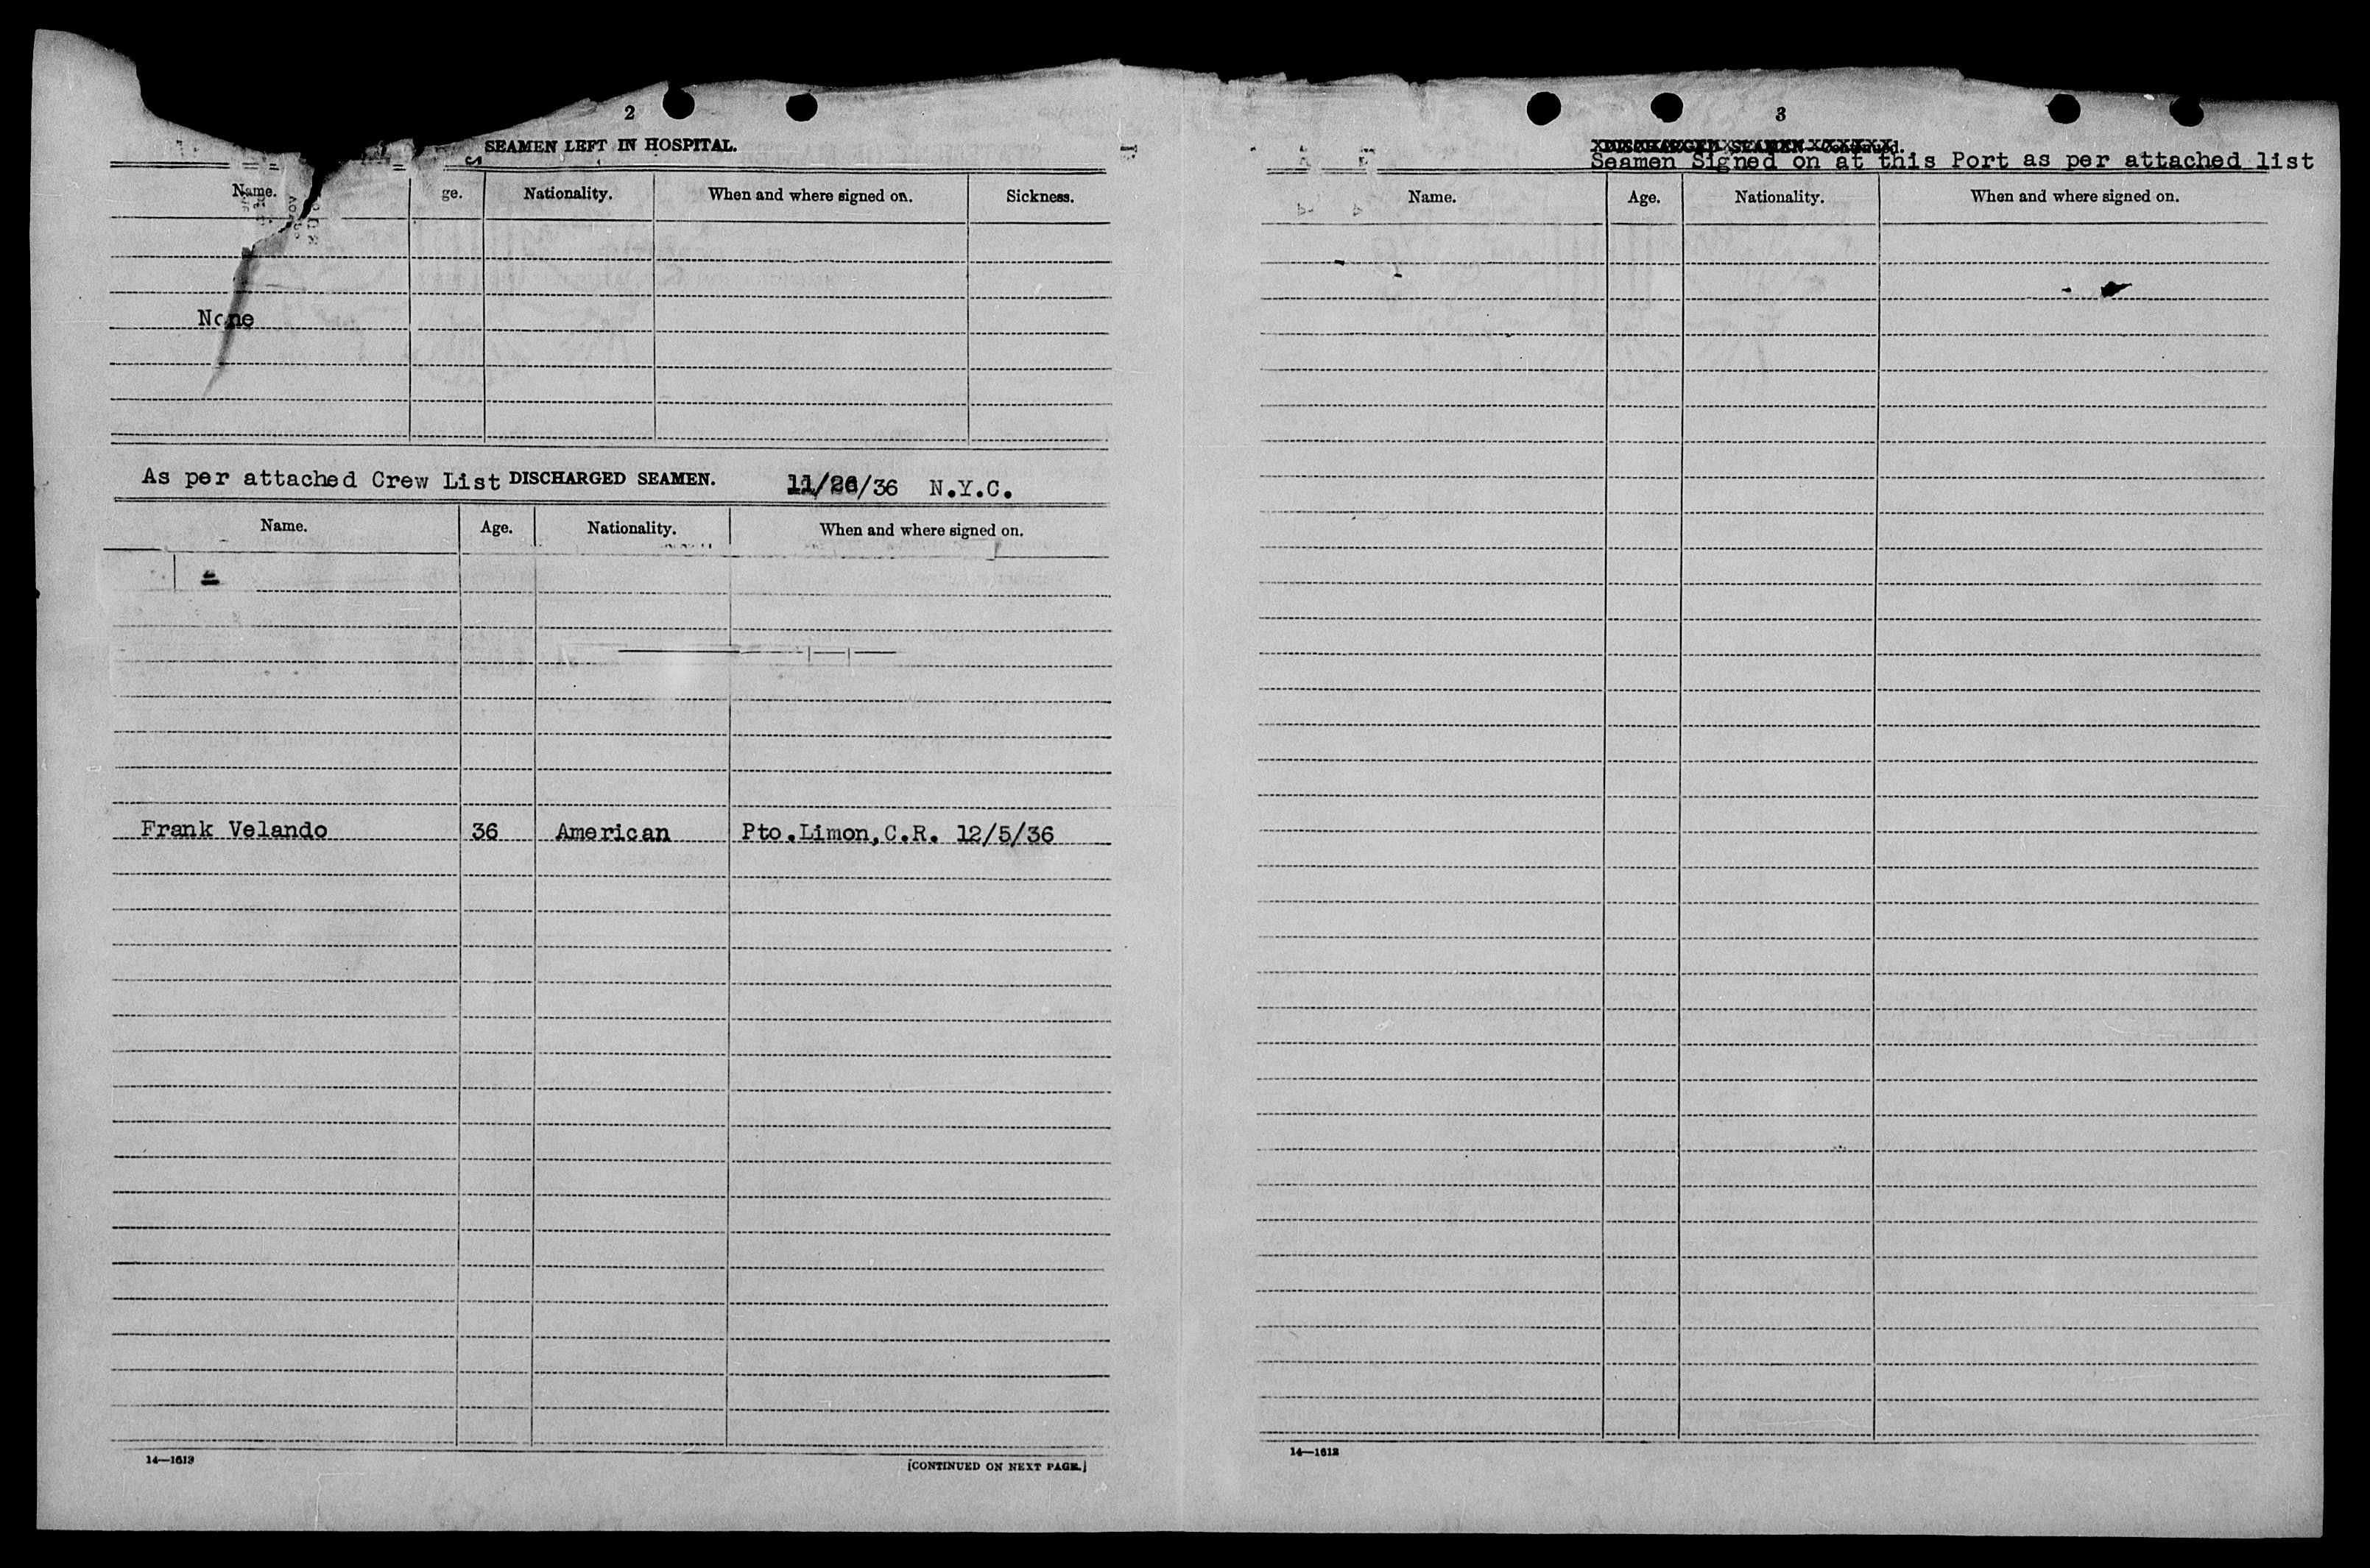 2
SEAMEN LEFT IN HOSPITAL.
Name. ge. Nationality. When and where signed on. Sickness.
None
As per attached Crew List DISCHARGED SEAMEN. 11/26/36 N.Y.C.
Name. Age. Nationality. When and where signed on.
Frank Velando 36 American Pto.Limon,C.R. 12/5/36
14—1613
[CONTINUED ON NEXT PAGE.]
3
DISCHARGED SEAMEN—Continued.
Seamen Signed on at this Port as per attached list
Name. Age. Nationality. When and where signed on.
14—1613